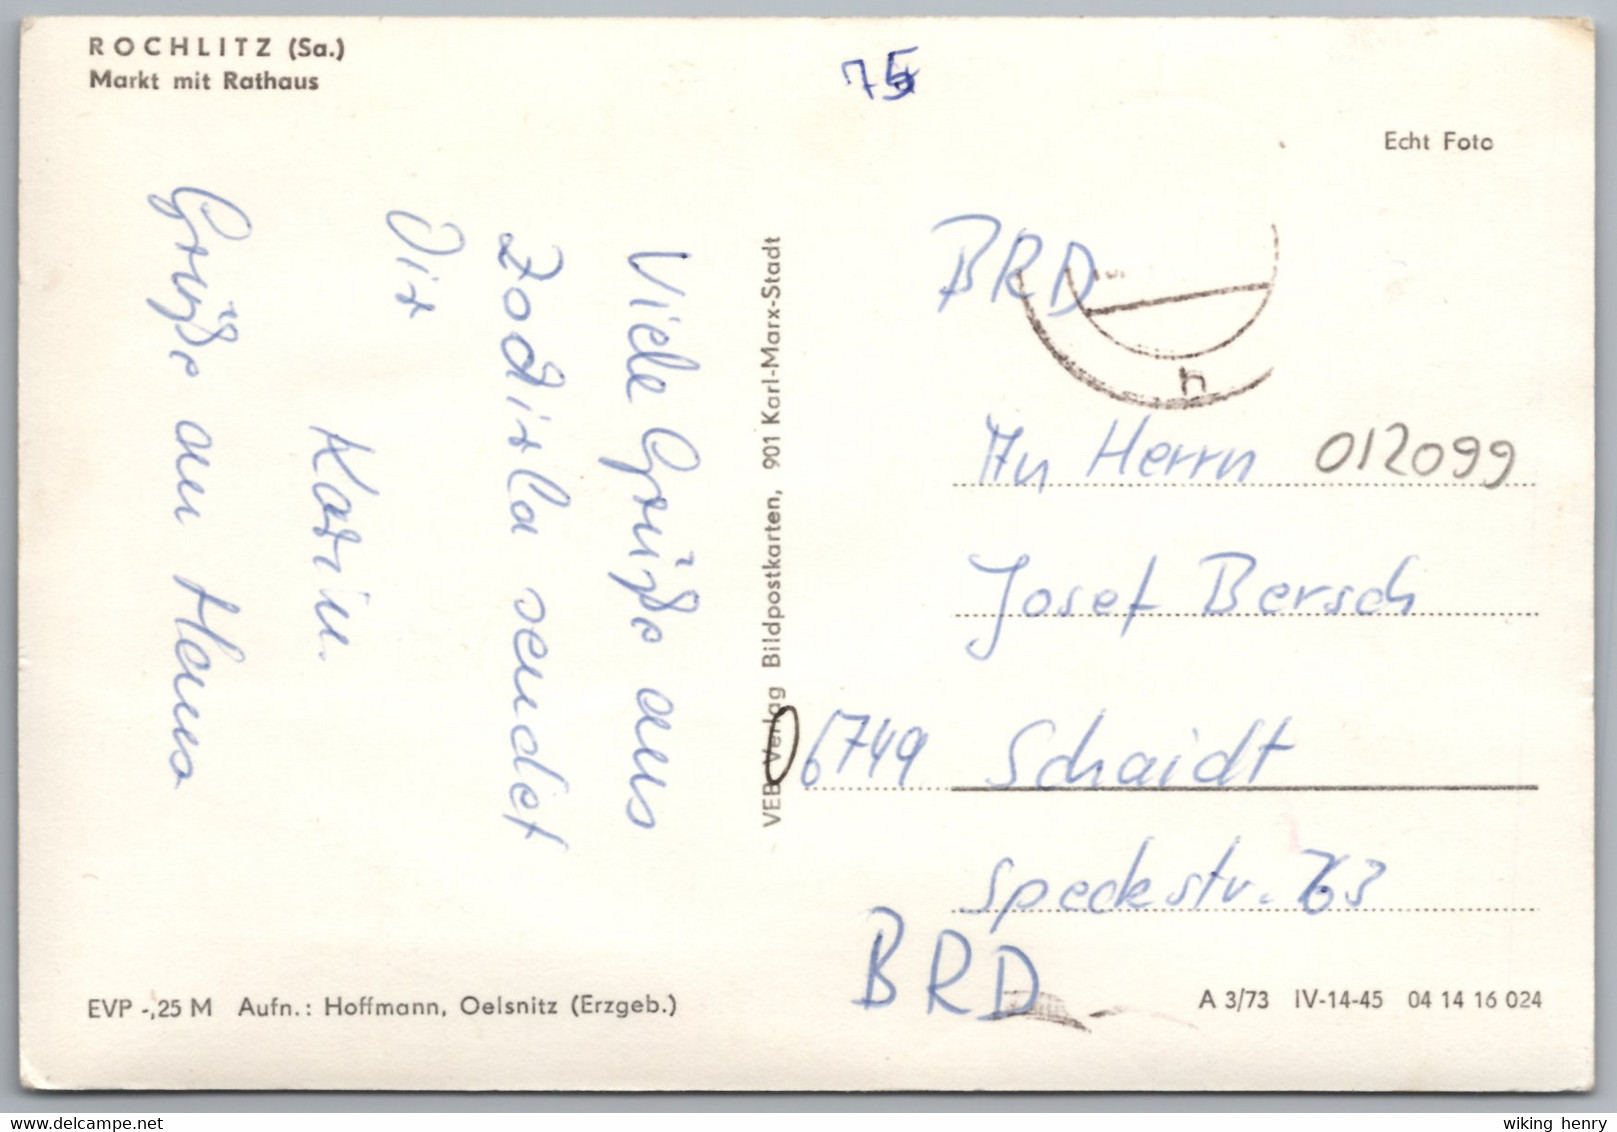 ROCHLITZ (Sa.)
Markt mit Rathaus
75
Echt Foto
Viele Grüße aus
sendet
Dir
Katrin.
Grüße an Hans
VEB Verlag Bildpostkarten, 901 Karl-Marx-Stadt
BRD
h
An Herrn 012099
Josef Bersch
6749 Schaidt
Speckstr. 63
BRD
EVP -,25 M Aufn.: Hoffmann, Oelsnitz (Erzgeb.)
A 3/73 IV-14-45 04 14 16 024
wiking henry